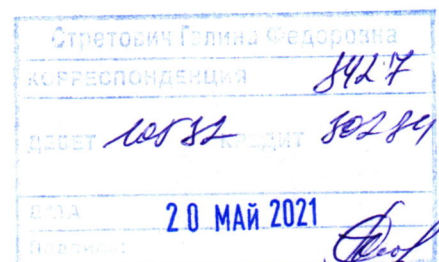 Стретович Галина Федоровна
КОРРЕСПОНДЕНЦИЯ 8427
ДЕБЕТ 10532 КРЕДИТ 30284
ДАТА 20 МАЙ 2021
Подпись: